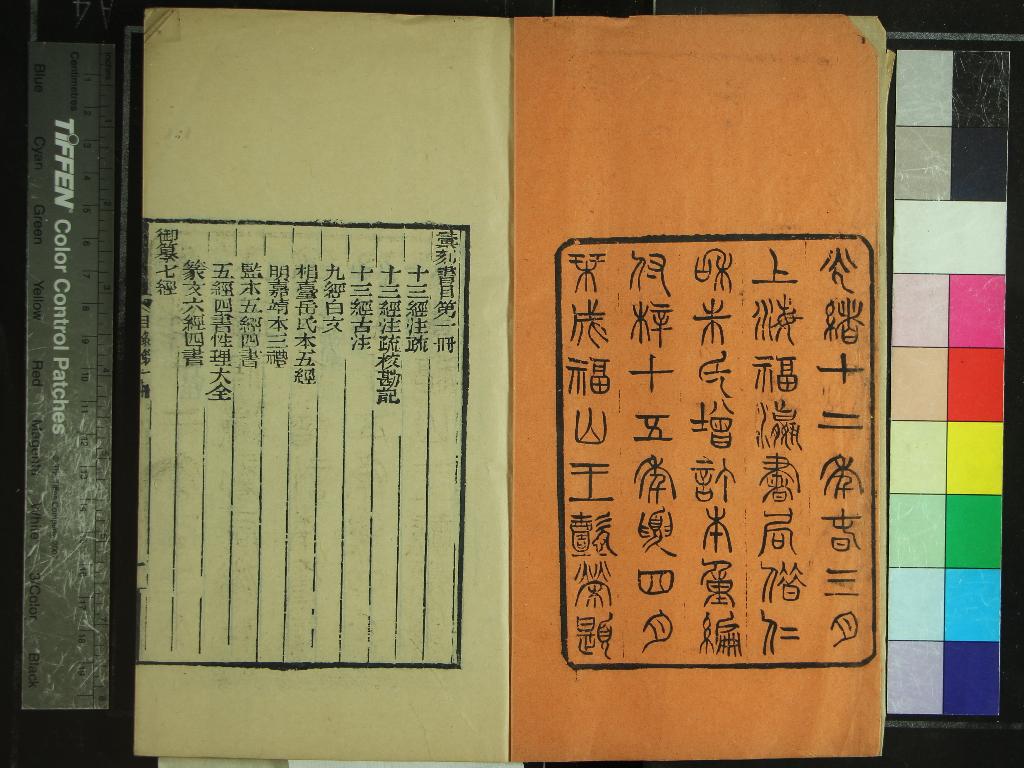 光緒十二年春三月
上海福瀛書局借仁
龢朱氏增訂本重編
付梓十五年夏四月
栞成福山王懿榮題
彙刻書目第一冊
十三經注疏
十三經注疏校勘記
十三經古注
九經白文
相臺岳氏本五經
明嘉靖本三禮
監本五經四書
五經四書性理大全
篆文六經四書
御纂七經
Inches
Centimetres
TIFFEN Color Control Patches
Blue Cyan Green Yellow Red Magenta White 3/Color Black